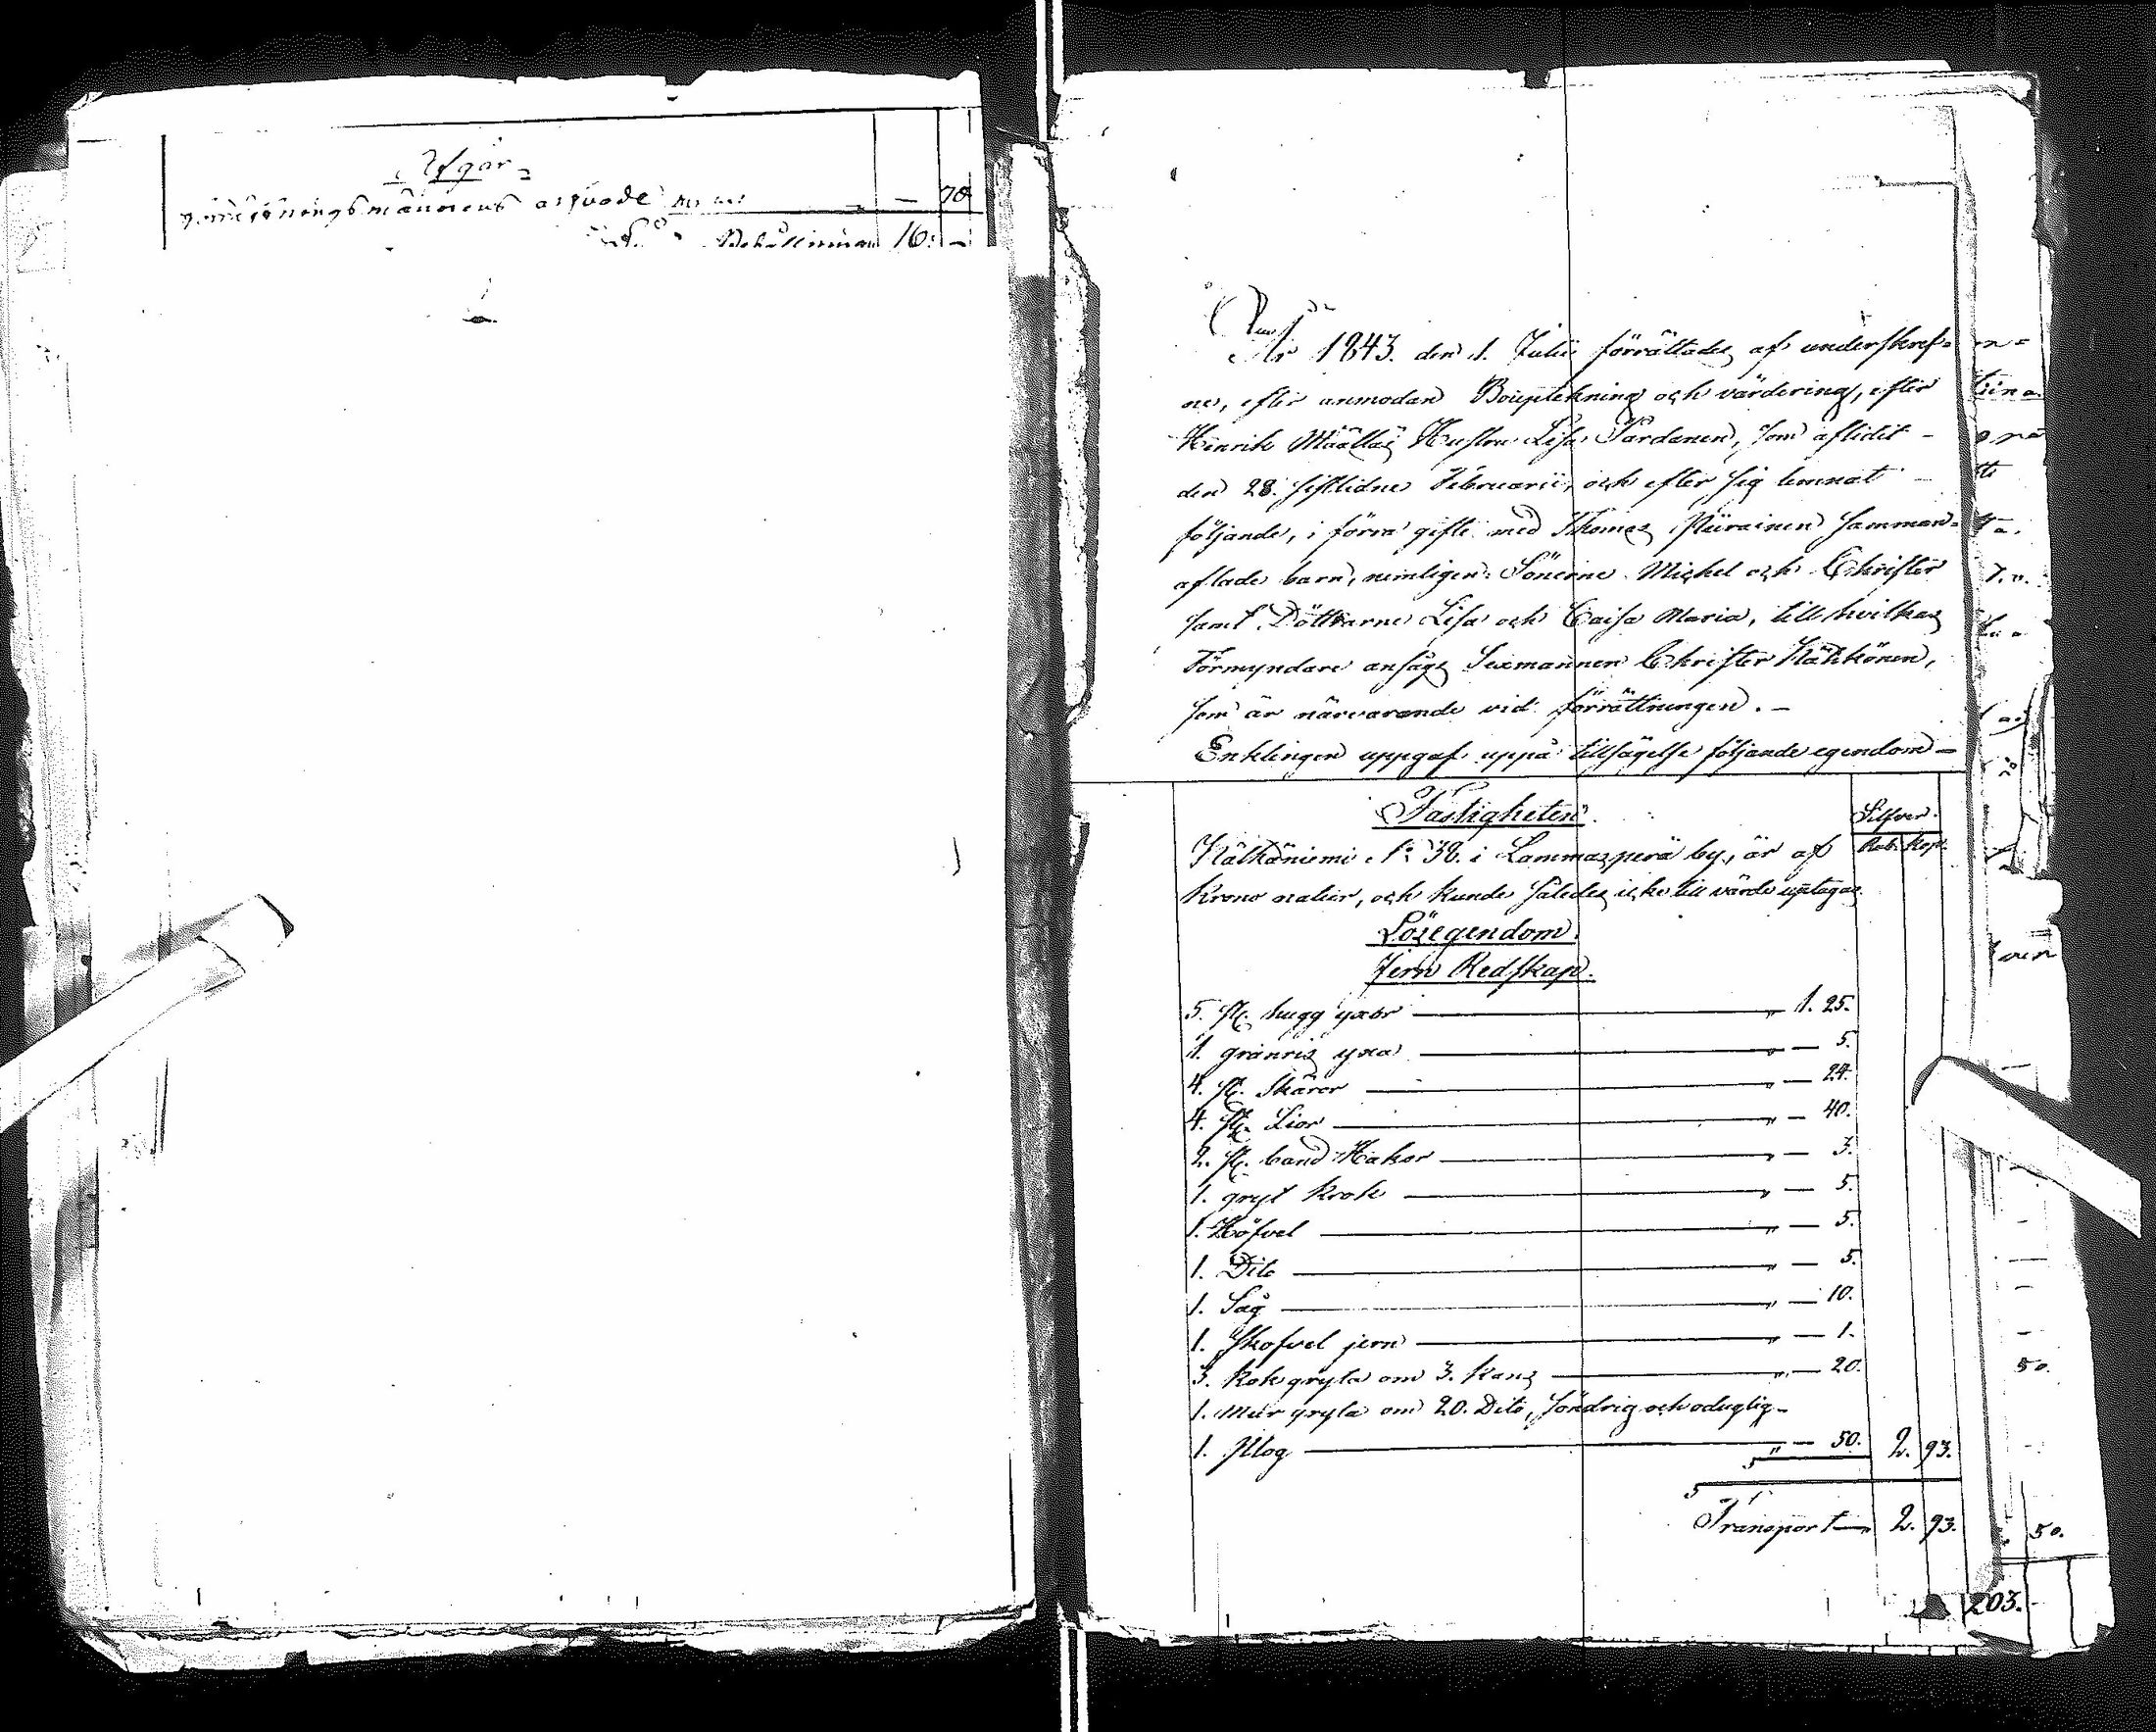 Afgår
arfvode — 70
Behållning 16. —
År 1843. den 1. Julii förrättades af underskref-
ne, efter anmodan Bouptekning och värdering, efter
Henrik Määttäs Hustru Lisa Tärdanen, som aflidit -
den 28. sistlidne Februarii, och efter sig lemnat -
följande, i förra gifte med Thomas Piirainen samman-
aflade barn, nemligen: Sönerne Michel och Christer
samt Döttrarne Lisa och Caisa Maria, till hvilkas
Förmyndare ansågs Sexmannen Christer Hätkönen,
som är närvarande vid förrättningen. -
Enklingen uppgaf uppå tillsägelse följande egendom -
Fastigheten.
Silfver.
Hätkäniemi N:o 38. i Lammasperä by, är af
Rub. Kop.
Krono natur, och kunde således icke till värde uptagas
Lösegendom.
Jern Redskap.
5. st. hugg yxor — " 1. 25.
1. granris yxa — " — 5.
4. st. Skäror — " — 24.
4. st. Lior — " — 40.
2. st. band Hakor — " — 3.
1. gryt krok — " — 5.
1. Höfvel — " — 5.
1. Dito — " — 5.
1. Såg — " — 10.
1. Skofvel jern — " — 1.
3. kok gryta om 3. kans — " — 20.
1. mur gryta om 20. Dito, söndrig och oduglig -
1. Plog — " — 50. 2. 93.
Transport — 2. 93.
50.
50.
203.